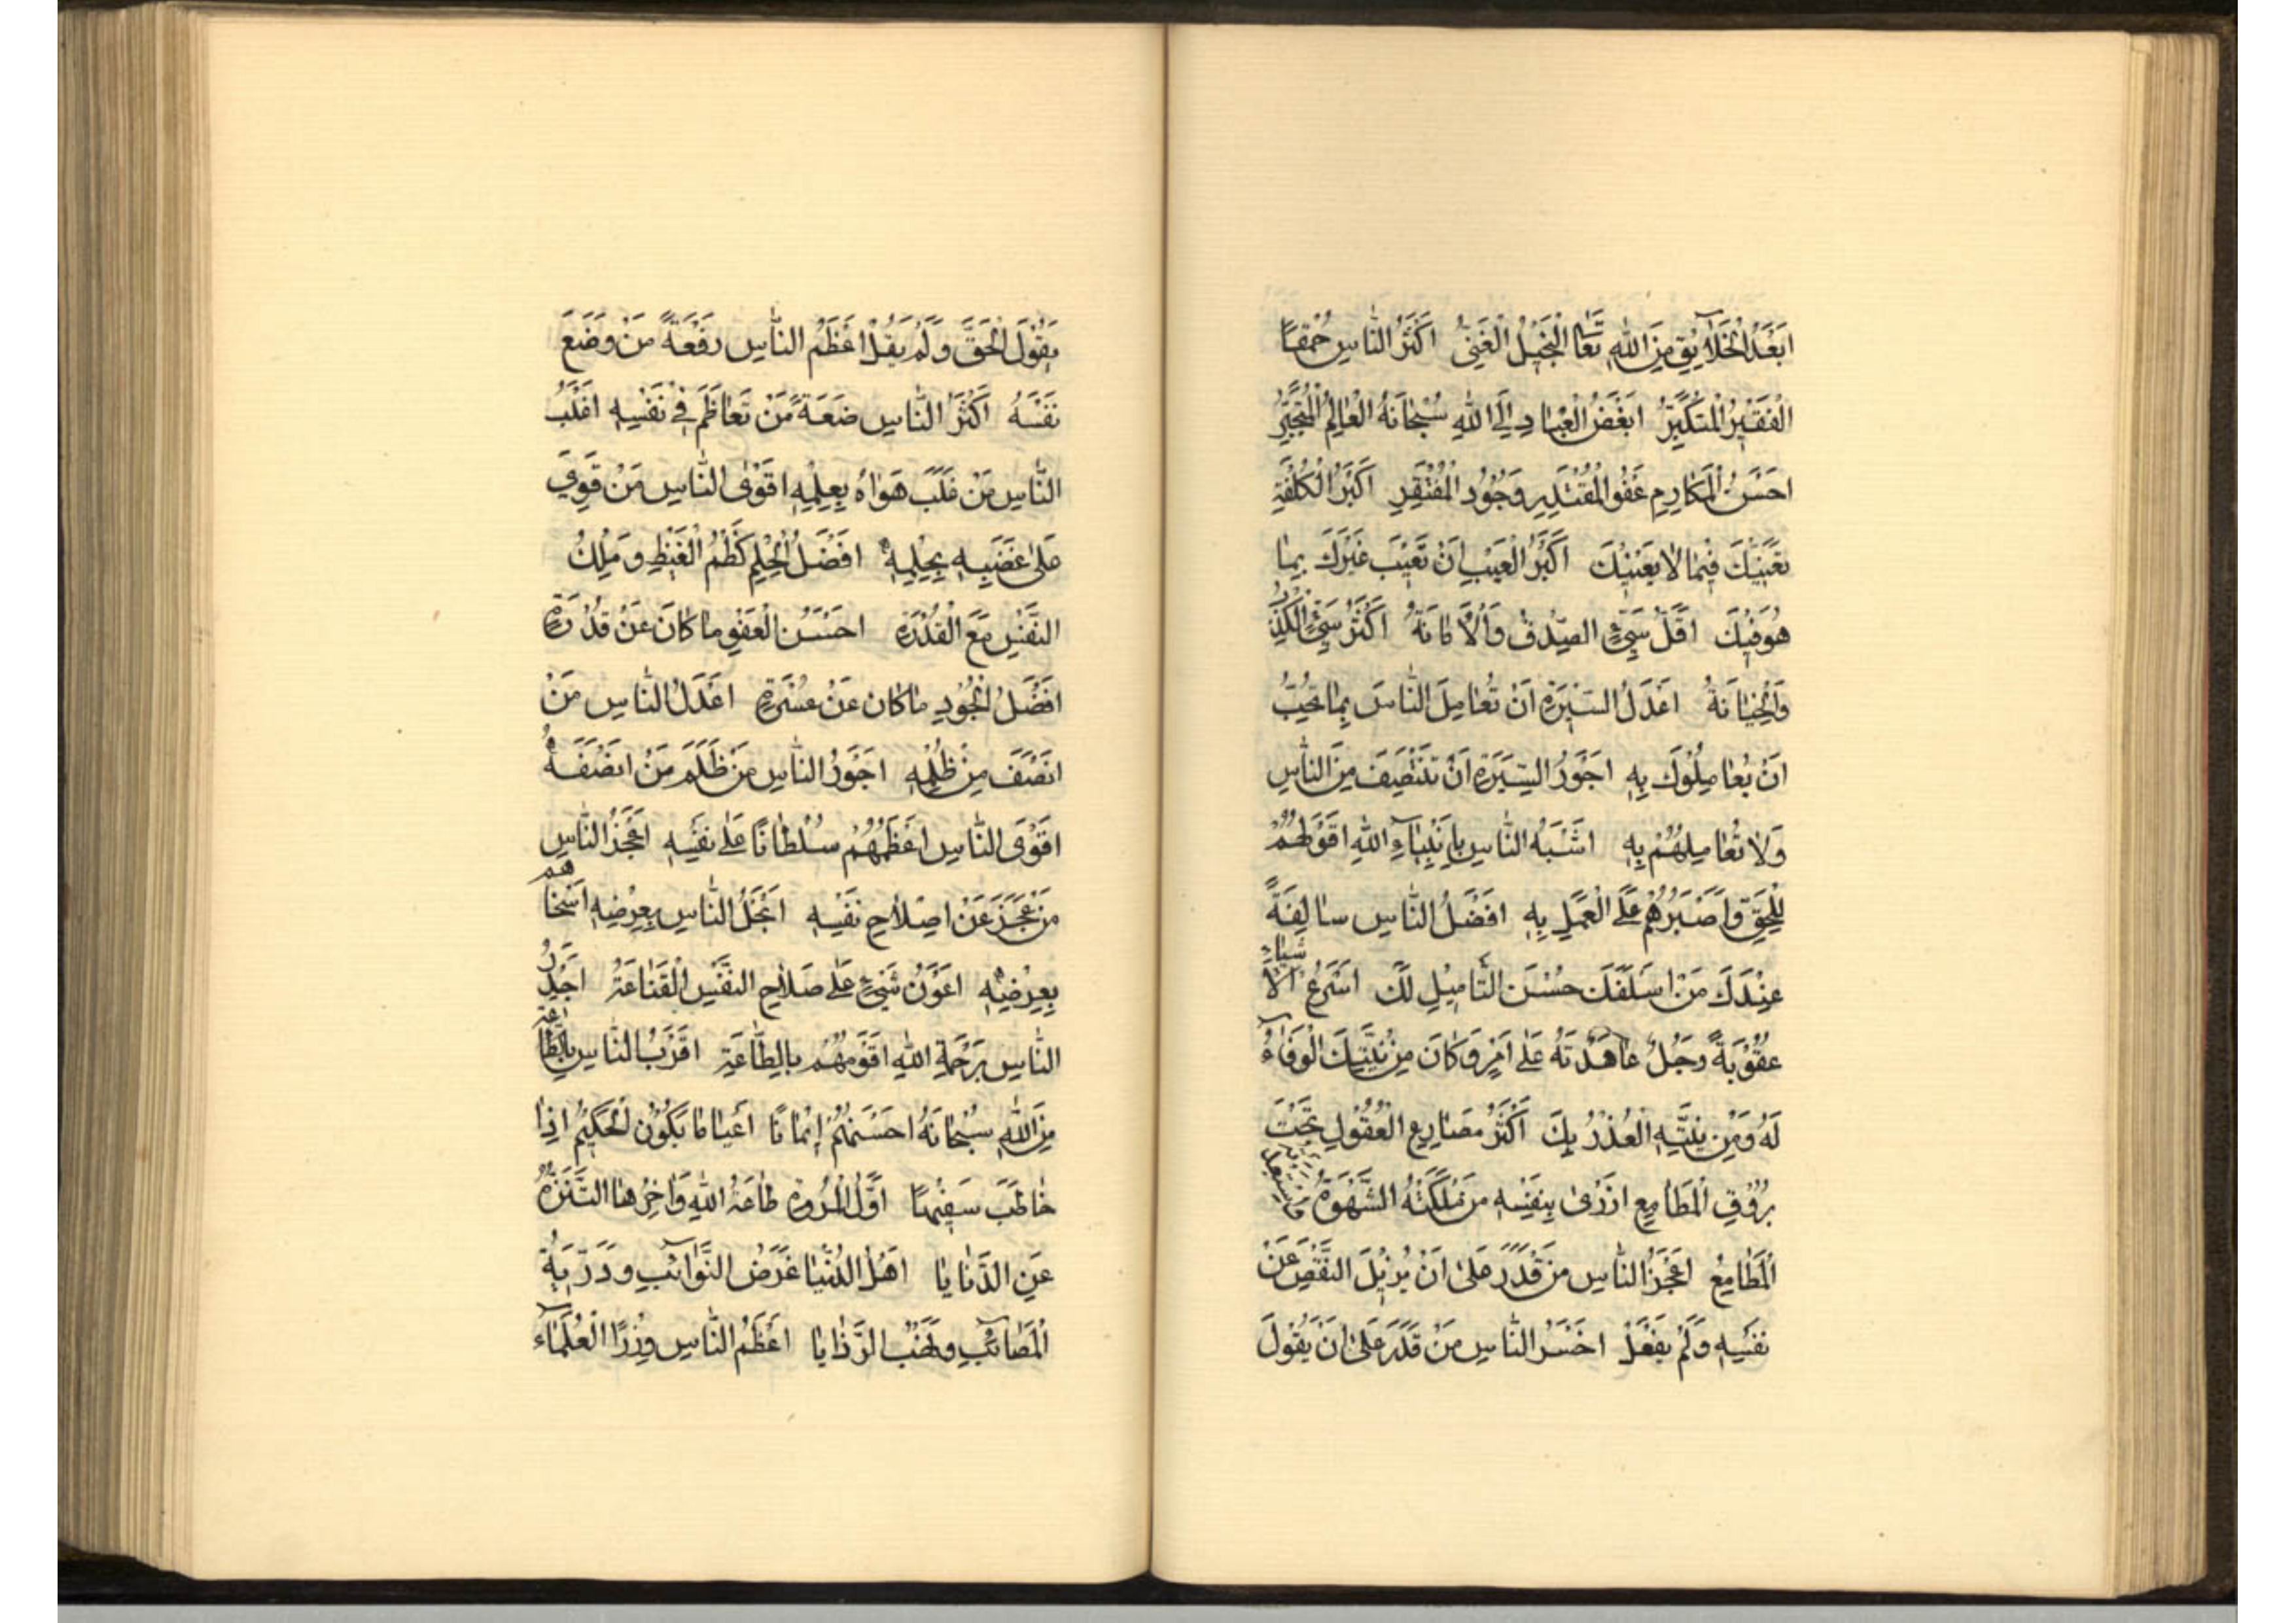 اَبْعَدُ الْخَلَآئِقِ مِنَ اللّٰهِ تَعَا الْبَخِيلُ الْغَنِيُّ اَكْثَرُ النَّاسِ حُمْقًا
الْفَقِيرُ الْمُتَكَبِّرُ اَبْغَضُ الْعِبَادِ اِلَى اللّٰهِ سُبْحَانَهُ الْعَالِمُ الْمُتَجَبِّرُ
اَحْسَنُ الْمَكَارِمِ عَفْوُ الْمُقْتَدِرِ وَجُودُ الْمُفْتَقِرِ اَكْبَرُ الْكُلْفَةِ
تَعَنِّيْكَ فِيْمَا لَا يَعْنِيْكَ اَكْبَرُ الْعَيْبِ اَنْ تَعِيْبَ غَيْرَكَ بِمَا
هُوَ فِيْكَ اَقَلُّ شَيْءٍ الصِّدْقُ وَالْاَمَانَةُ اَكْثَرُ شَيْءٍ الْكَذِبُ
وَالْخِيَانَةُ اَعْدَلُ السِّيْرَةِ اَنْ تُعَامِلَ النَّاسَ بِمَا تُحِبُّ
اَنْ يُعَامِلُوْكَ بِهِ اَجْوَرُ السِّيْرَةِ اَنْ تَنْتَصِفَ مِنَ النَّاسِ
وَلَا تُعَامِلَهُمْ بِهِ اَشْبَهُ النَّاسِ بِاَنْبِيَآءِ اللّٰهِ اَقْوَلُهُمْ
لِلْحَقِّ وَاَصْبَرُهُمْ عَلَى الْعَمَلِ بِهِ اَفْضَلُ النَّاسِ سَالِفَةً
عِنْدَكَ مَنْ اَسْلَفَكَ حُسْنَ التَّأْمِيْلِ لَكَ اَسْرَعُ الْاَشْيَاءِ
عُقُوْبَةً رَجُلٌ عَاهَدْتَهُ عَلٰى اَمْرٍ وَكَانَ مِنْ نِيَّتِكَ الْوَفَآءُ
لَهُ وَمِنْ نِيَّتِهِ الْغَدْرُ بِكَ اَكْثَرُ مَصَارِعِ الْعُقُوْلِ تَحْتَ
بُرُوْقِ الْمَطَامِعِ اَزْرٰى بِنَفْسِهِ مَنْ مَلَكَتْهُ الشَّهْوَةُ وَاسْتَعْبَدَتْهُ
الْمَطَامِعُ اَعْجَزُ النَّاسِ مَنْ قَدَرَ عَلٰى اَنْ يُزِيْلَ النَّقْصَ عَنْ
نَفْسِهِ وَلَمْ يَفْعَلْ اَخْسَرُ النَّاسِ مَنْ قَدَرَ عَلٰى اَنْ يَقُوْلَ
يَقُوْلَ الْحَقَّ وَلَمْ يَقُلْ اَعْظَمُ النَّاسِ رَفْعَةً مَنْ وَضَعَ
نَفْسَهُ اَكْثَرُ النَّاسِ ضَعَةً مَنْ تَعَاظَمَ فِيْ نَفْسِهِ اَغْلَبُ
النَّاسِ مَنْ غَلَبَ هَوَاهُ بِعِلْمِهِ اَقْوَى النَّاسِ مَنْ قَوِيَ
عَلٰى غَضَبِهِ بِحِلْمِهِ اَفْضَلُ الْحِلْمِ كَظْمُ الْغَيْظِ وَ مَلْكُ
النَّفْسِ مَعَ الْقُدْرَةِ اَحْسَنُ الْعَفْوِ مَا كَانَ عَنْ قُدْرَةٍ
اَفْضَلُ الْجُوْدِ مَا كَانَ عَنْ عُسْرَةٍ اَعْدَلُ النَّاسِ مَنْ
اَنْصَفَ مِنْ ظُلْمِهِ اَجْوَرُ النَّاسِ مَنْ ظَلَمَ مَنْ اَنْصَفَهُ
اَقْوَى النَّاسِ اَعْظَمُهُمْ سُلْطَانًا عَلٰى نَفْسِهِ اَعْجَزُ النَّاسِ
مَنْ عَجَزَ عَنْ اِصْلَاحِ نَفْسِهِ اَبْخَلُ النَّاسِ بِعِرْضِهِ اَسْخَاهُمْ
بِعِرْضِهِ اَعْوَنُ شَيْءٍ عَلٰى صَلَاحِ النَّفْسِ الْقَنَاعَةُ اَجْدَرُ
النَّاسِ بِرَحْمَةِ اللّٰهِ اَقْوَمُهُمْ بِالطَّاعَةِ اَقْرَبُ النَّاسِ بِالطَّاعَةِ
مِنَ اللّٰهِ سُبْحَانَهُ اَحْسَنُهُمْ اِيْمَانًا اَعْيَا مَا يَكُوْنُ الْحَكِيْمُ اِذَا
خَاطَبَ سَفِيْهًا اَوَّلُ الْمُرُوَّةِ طَاعَةُ اللّٰهِ وَاٰخِرُهَا التَّنَزُّهُ
عَنِ الدَّنَايَا اَهْلُ الدُّنْيَا غَرَضُ النَّوَآئِبِ وَ دَرِّيَةُ
الْمَصَآئِبِ وَ نَهْبُ الرَّزَايَا اَعْظَمُ النَّاسِ وِزْرًا الْعُلَمَآءُ